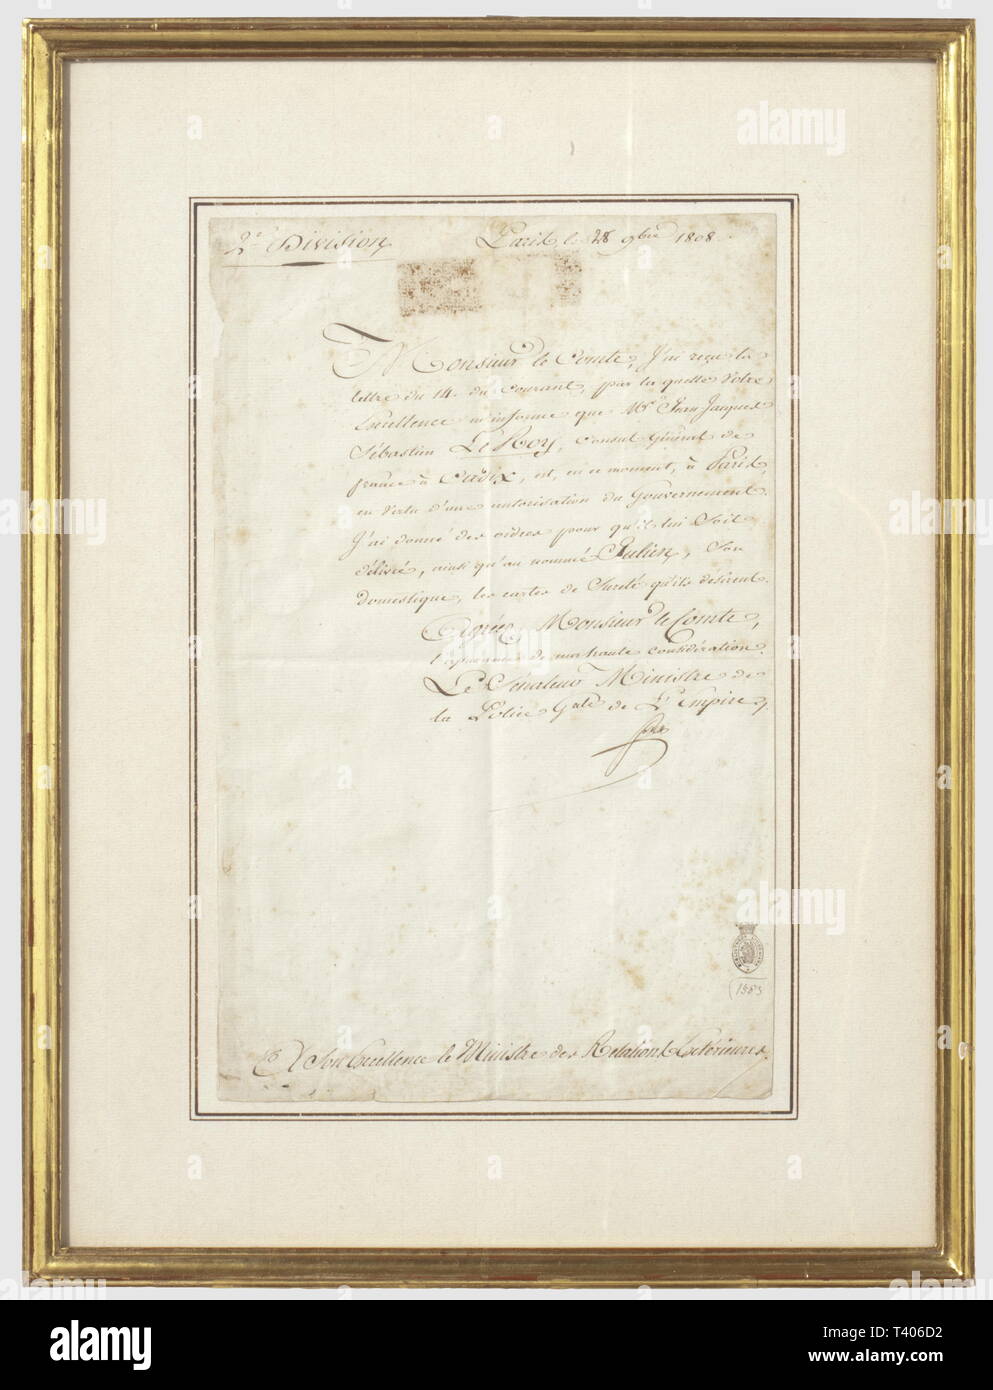 2e Division
Paris le 28 9bre 1808.
Monsieur le Comte, J'ai reçu la
lettre du 14. du Courant, par la quelle Votre
Excellence m'informe que Mr. Jean Jacques
Sébastien Le Roy, Consul Général de
france à Cadix, est, en ce moment, à Paris,
en Vertu d'une autorisation du Gouvernement.
J'ai donné des ordres pour qu'il lui Soit
délivré, ainsi qu'au nommé Julien, Son
domestique, les cartes de Sureté qu'ils désirent.
Agréez, Monsieur le Comte,
l'assurance de ma haute considération.
Le Sénateur Ministre de
la Police Gale de L'Empire,
1983
A Son Excellence le Ministre des Relations Extérieures.
alamy
Image ID: T406D2
www.alamy.com